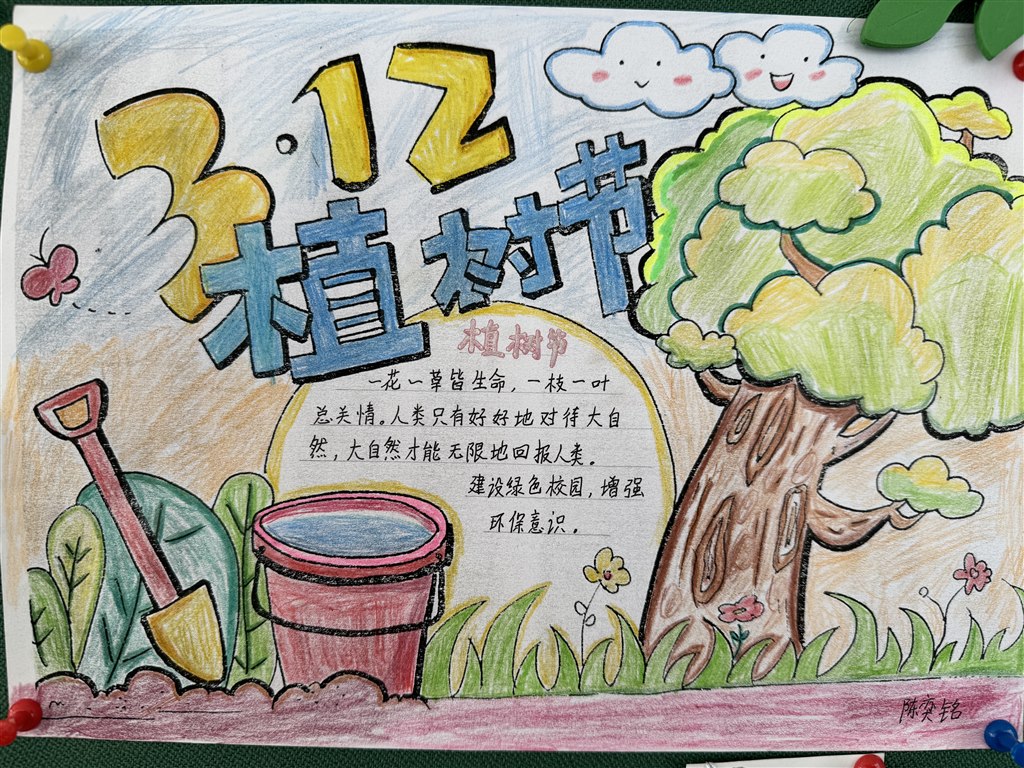 3.12
植树节
植树节
一花一草皆生命，一枝一叶
总关情。人类只有好好地对待大自
然，大自然才能无限地回报人类。
建设绿色校园，增强
环保意识。
陈奕铭